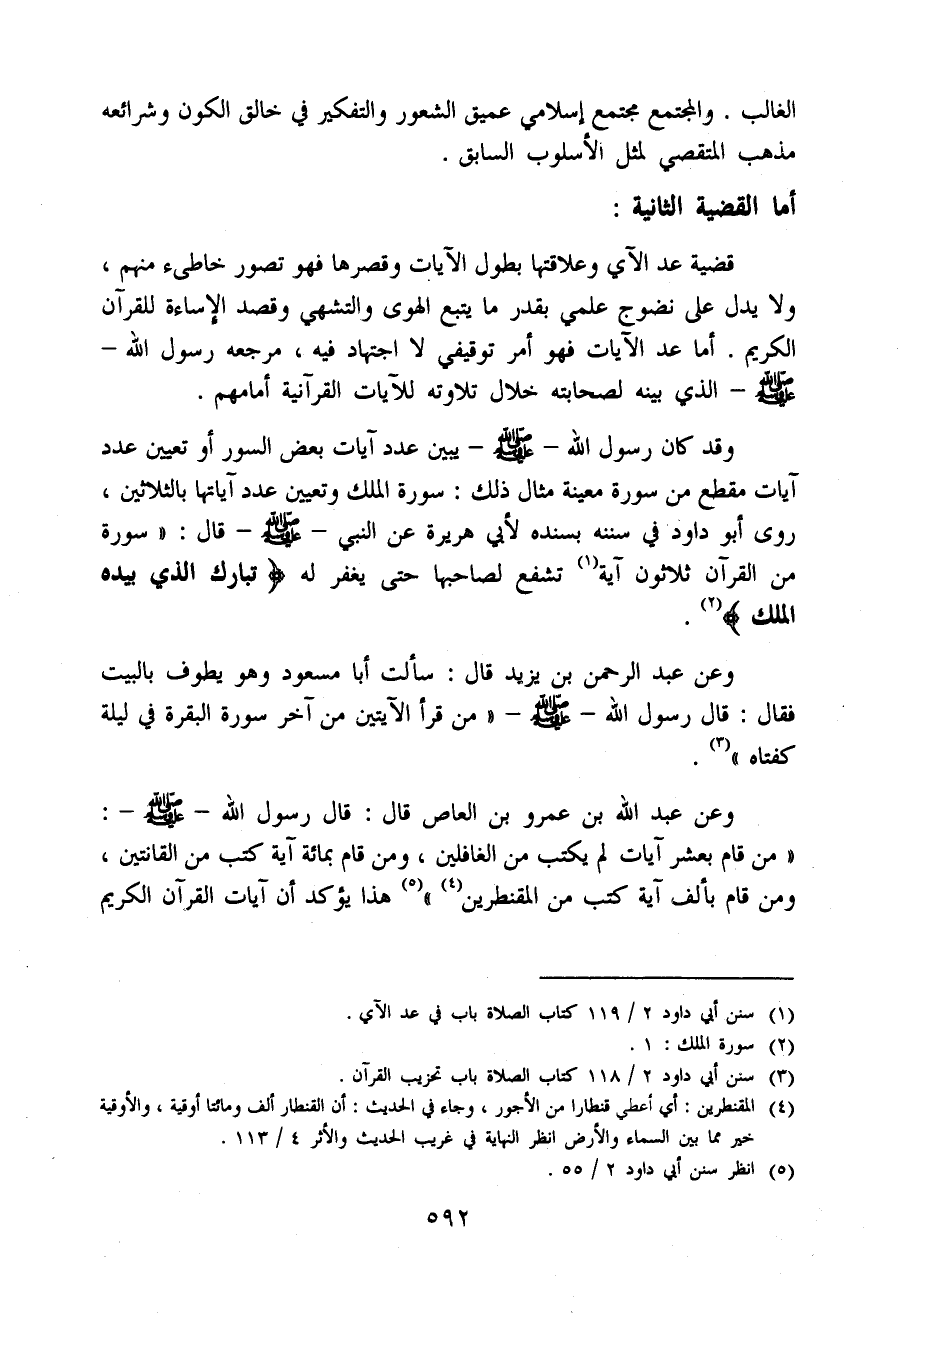 الغالب . والمجتمع مجتمع إسلامي عميق الشعور والتفكير في خالق الكون وشرائعه
مذهب المتقصي لمثل الأسلوب السابق .
أما القضية الثانية :
قضية عد الآي وعلاقتها بطول الآيات وقصرها فهو تصور خاطىء منهم ،
ولا يدل على نضوج علمي بقدر ما يتبع الهوى والتشهي وقصد الإساءة للقرآن
الكريم . أما عد الآيات فهو أمر توقيفي لا اجتهاد فيه ، مرجعه رسول الله –
ﷺ – الذي بينه لصحابته خلال تلاوته للآيات القرآنية أمامهم .
وقد كان رسول الله – ﷺ – يبين عدد آيات بعض السور أو تعيين عدد
آيات مقطع من سورة معينة مثال ذلك : سورة الملك وتعيين عدد آياتها بالثلاثين ،
روى أبو داود في سننه بسنده لأبي هريرة عن النبي – ﷺ – قال : « سورة
من القرآن ثلاثون آية(١) تشفع لصاحبها حتى يغفر له ﴿ تبارك الذي بيده
الملك ﴾(٢) .
وعن عبد الرحمن بن يزيد قال : سألت أبا مسعود وهو يطوف بالبيت
فقال : قال رسول الله – ﷺ – « من قرأ الآيتين من آخر سورة البقرة في ليلة
كفتاه »(٣) .
وعن عبد الله بن عمرو بن العاص قال : قال رسول الله – ﷺ – :
« من قام بعشر آيات لم يكتب من الغافلين ، ومن قام بمائة آية كتب من القانتين ،
ومن قام بألف آية كتب من المقنطرين(٤) »(٥) هذا يؤكد أن آيات القرآن الكريم
(١) سنن أبي داود ٢ / ١١٩ كتاب الصلاة باب في عد الآي .
(٢) سورة الملك : ١ .
(٣) سنن أبي داود ٢ / ١١٨ كتاب الصلاة باب تحزيب القرآن .
(٤) المقنطرين : أي أعطي قنطارا من الأجور ، وجاء في الحديث : أن القنطار ألف ومائتا أوقية ، والأوقية
خير مما بين السماء والأرض انظر النهاية في غريب الحديث والأثر ٤ / ١١٣ .
(٥) انظر سنن أبي داود ٢ / ٥٥ .
٥٩٢